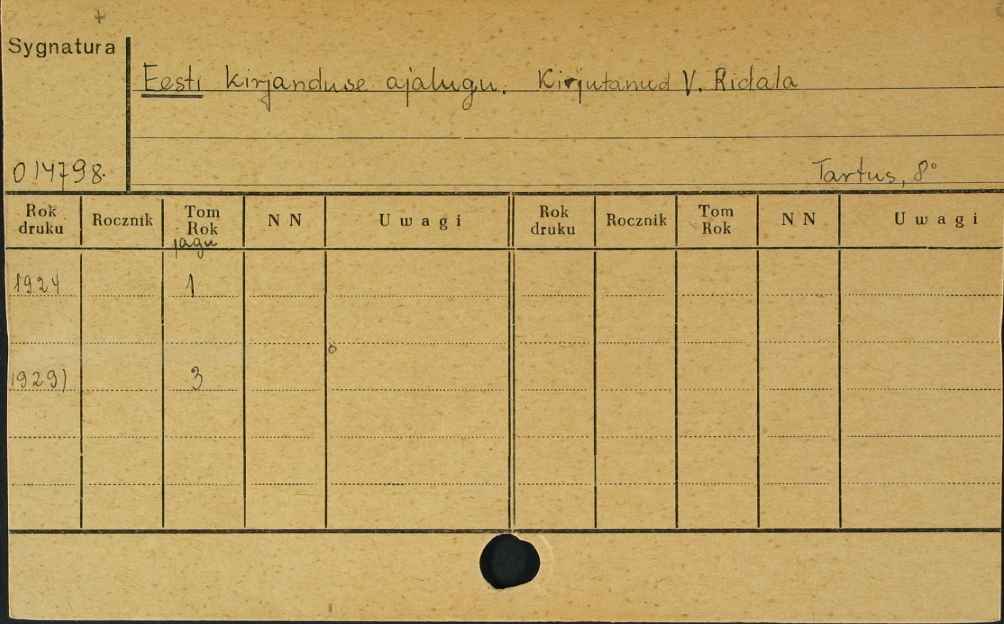 +
Sygnatura
Eesti kirjanduse ajalugu. Kirjutanud V. Ridala
014798.
Tartus, 8°
Rok druku Rocznik Tom Rok N N Uwagi Rok druku Rocznik Tom Rok N N Uwagi
jagu
1924 1
1929) 3